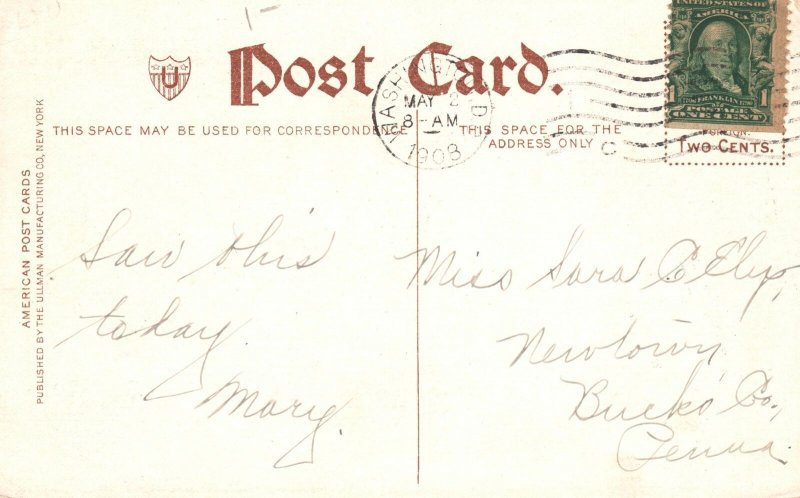 U
Post Card.
UNITED STATES OF
AMERICA
1 FRANKLIN 1
POSTAGE
ONE CENT
TWO CENTS.
WASHINGTON, D
MAY 2
8 - AM
1908
C
THIS SPACE MAY BE USED FOR CORRESPONDENCE
THIS SPACE FOR THE
ADDRESS ONLY
AMERICAN POST CARDS
PUBLISHED BY THE ULLMAN MANUFACTURING CO., NEW YORK
Saw this
today.
Mary.
Miss Sara C Ely,
Newtown
Bucks Co.,
Penna.